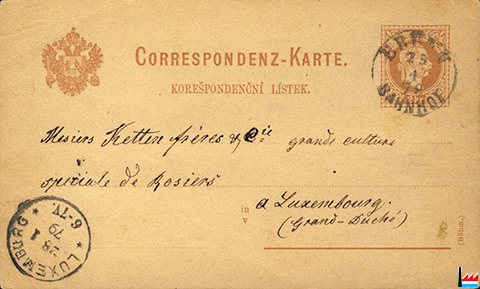 CORRESPONDENZ-KARTE.
KOREŠPONDENČNÍ LÍSTEK.
BRÜNN
25
1
79
BAHNHOF
Mesiers Ketten frères & Cie grande culture
speciale de Rosiers
in
v
a Luxembourg.
(Grand-Duché)
(Böhm.)
LUXEMBURG
28 1
79
6-7V.